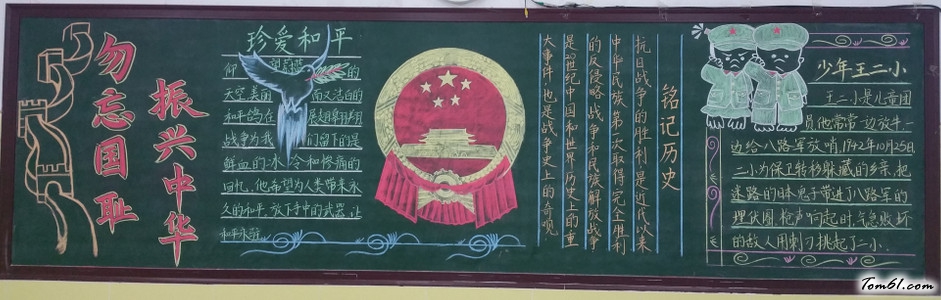 勿忘国耻
振兴中华
珍爱和平
仰望蔚蓝的
天空,美丽而又洁白的
和平鸽在展翅翱翔
战争为我们留下的是
鲜血的冰冷和疼痛的
回忆,他希望为人类带来永
久的和平,放下手中的武器,让
和平永驻。
铭记历史
抗日战争的胜利,是近代以来
中华民族第一次取得完全胜利
的反侵略战争和民族解放战争
是20世纪中国和世界历史上的重
大事件,也是战争史上的奇观。
少年王二小
王二小是儿童团
员他常常一边放牛,一
边给八路军放哨,1942年10月25日
二小为保卫转移躲藏的乡亲,把
迷路的日本鬼子带进了八路军的
埋伏圈,枪声响起时,气急败坏
的敌人用刺刀挑起了二小.
Tom61.com